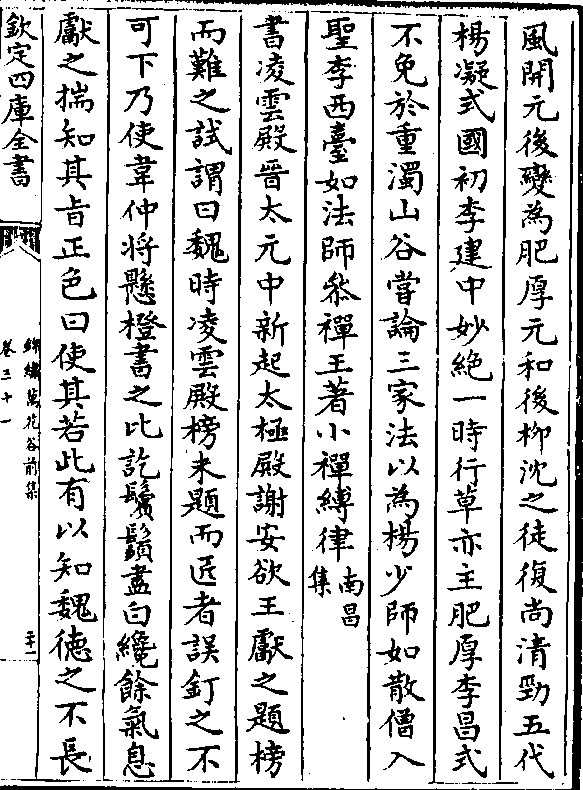 風開元後變為肥厚元和後柳沈之徒復尚清勁五代
楊凝式國初李建中妙絶一時行草亦主肥厚李昌式
不免於重濁山谷嘗論三家法以為楊少師如散僧入
聖李西臺如法師叅禪王著小禪縛律南昌集
書凌雲殿晉太元中新起太極殿謝安欲王獻之題榜
而難之試謂曰魏時凌雲殿榜未題而匠者誤釘之不
可下乃使韋仲将懸橙書之比訖鬚鬢盡白纔餘氣息
獻之揣知其旨正色曰使其若此有以知魏德之不長
欽定四庫全書
錦繡萬花谷前集
卷三十一